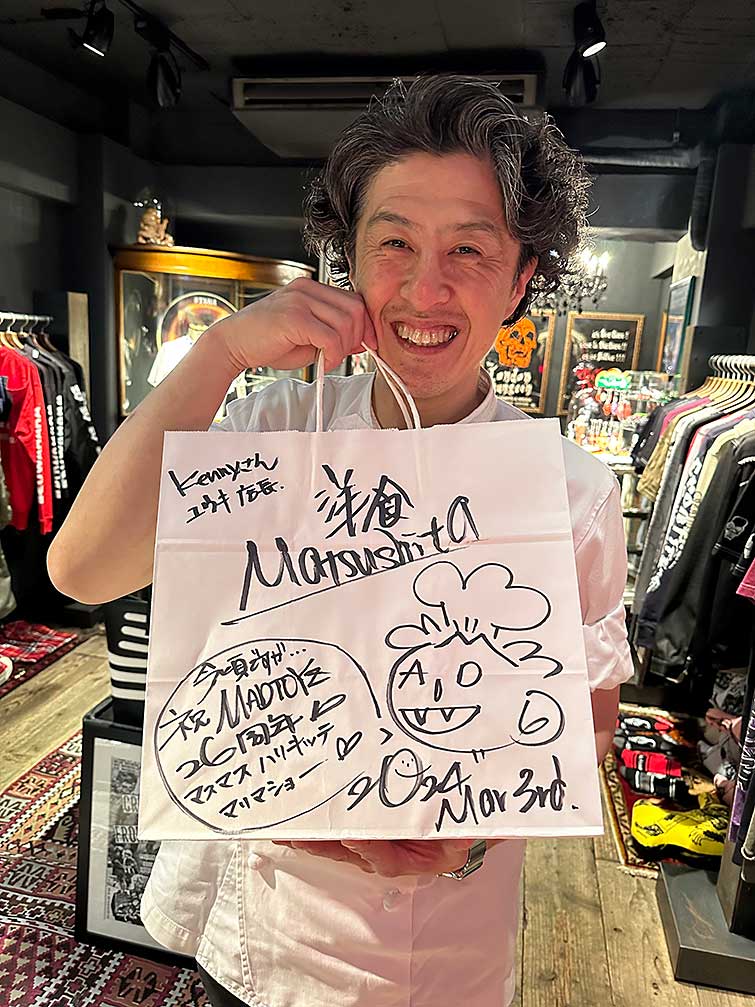 Kennyさん
ユウキ店長.
洋食
Matsushita
今頃ですが...
祝 MADTOYZ
26周年
マスマス ハリキッテ
マリマショー
A D
6
2024
Mar 3rd.